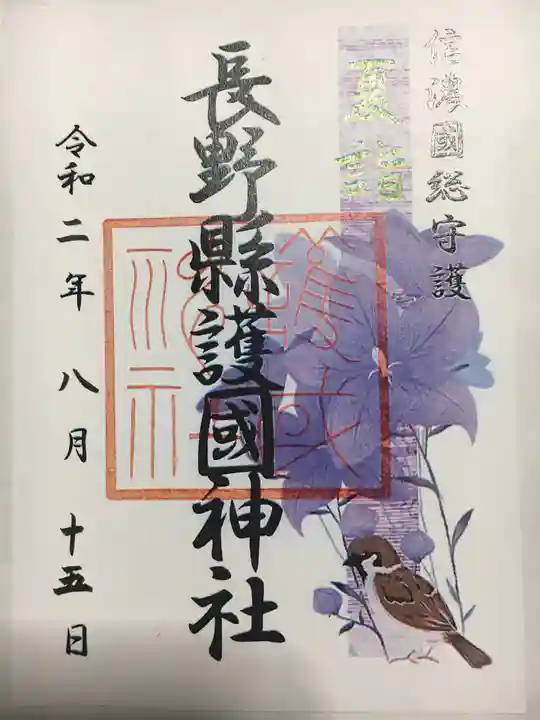 信濃國総守護
夏詣
長野縣護國神社
令和二年八月十五日